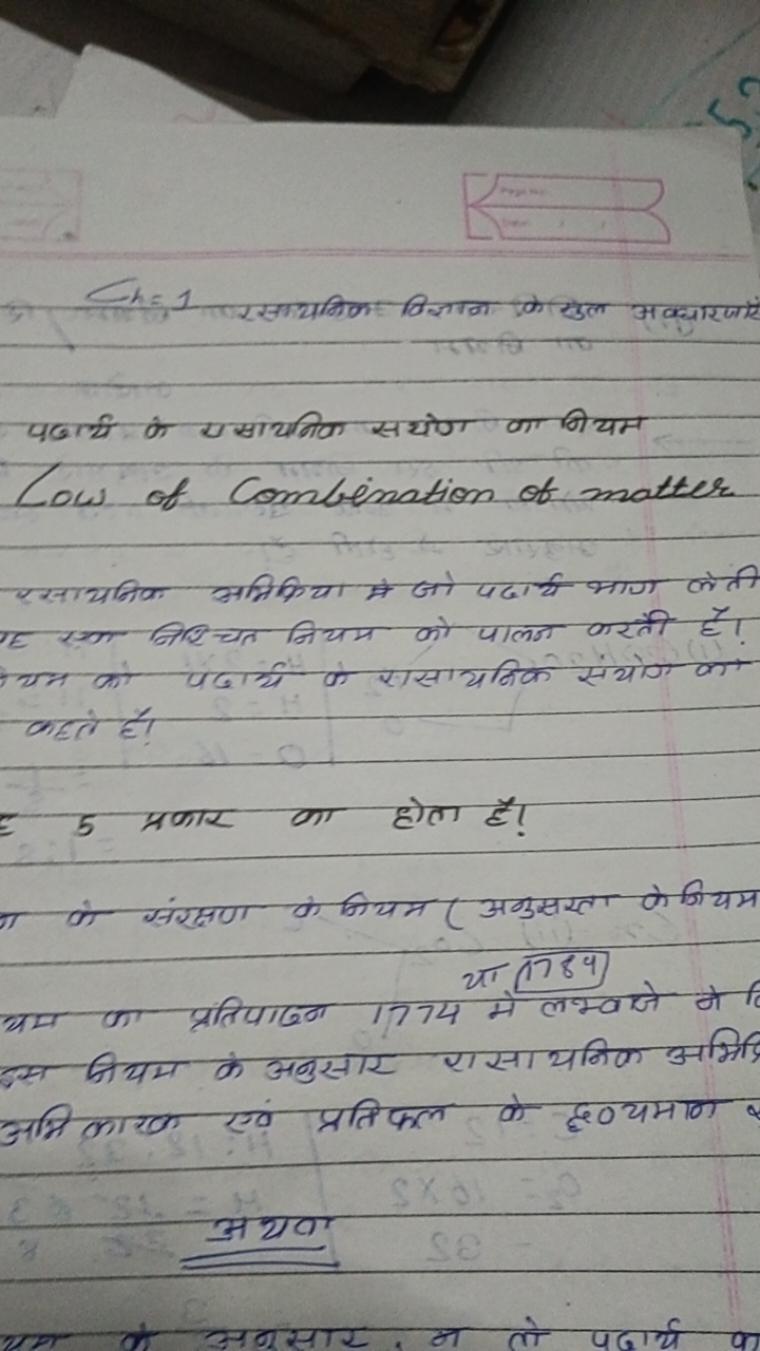 Ch = 1 रसायनिक विज्ञान के मुल अवधारणाएं
पदार्थ के रासायनिक सयोग का नियम
Low of Combination of matter
रसायनिक अभिक्रिया मे जो पदार्थ भाग लेती
एक निश्चित नियम को पालन करती है।
यम को पदार्थ के रासायनिक संयोग का
कहते है।
5 प्रकार का होता है।
के संरक्षण के नियम ( अनुसरता के नियम
या (1789)
यम का प्रतिपादन 1774 मे ने
इस नियम के अनुसार रासायनिक अभिक्रि
अभिकारक एवं प्रतिफल के द्रव्यमान
अथवा
यम के अनुसार, न तो पदार्थ क